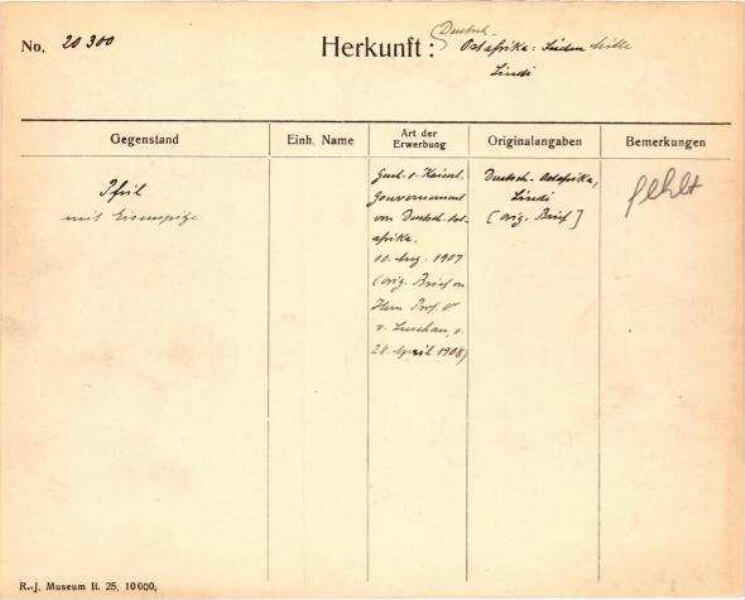 No. 20300
Herkunft: Deutsch-
Ostafrika: Süden
Lindi
Gegenstand
Einh. Name
Art der
Erwerbung
Originalangaben
Bemerkungen
Pfeil
mit Eisenspitze
Gesch. v. Kaiserl.
Gouvernement
von Deutsch-Ost-
afrika.
10. Aug. 1907
(orig. Brief an
Herrn Prof. Dr
v. Luschan, v.
28. April 1908)
Deutsch-Ostafrika,
Lindi
[orig. Brief]
fehlt
R.-J. Museum II. 25. 10000.